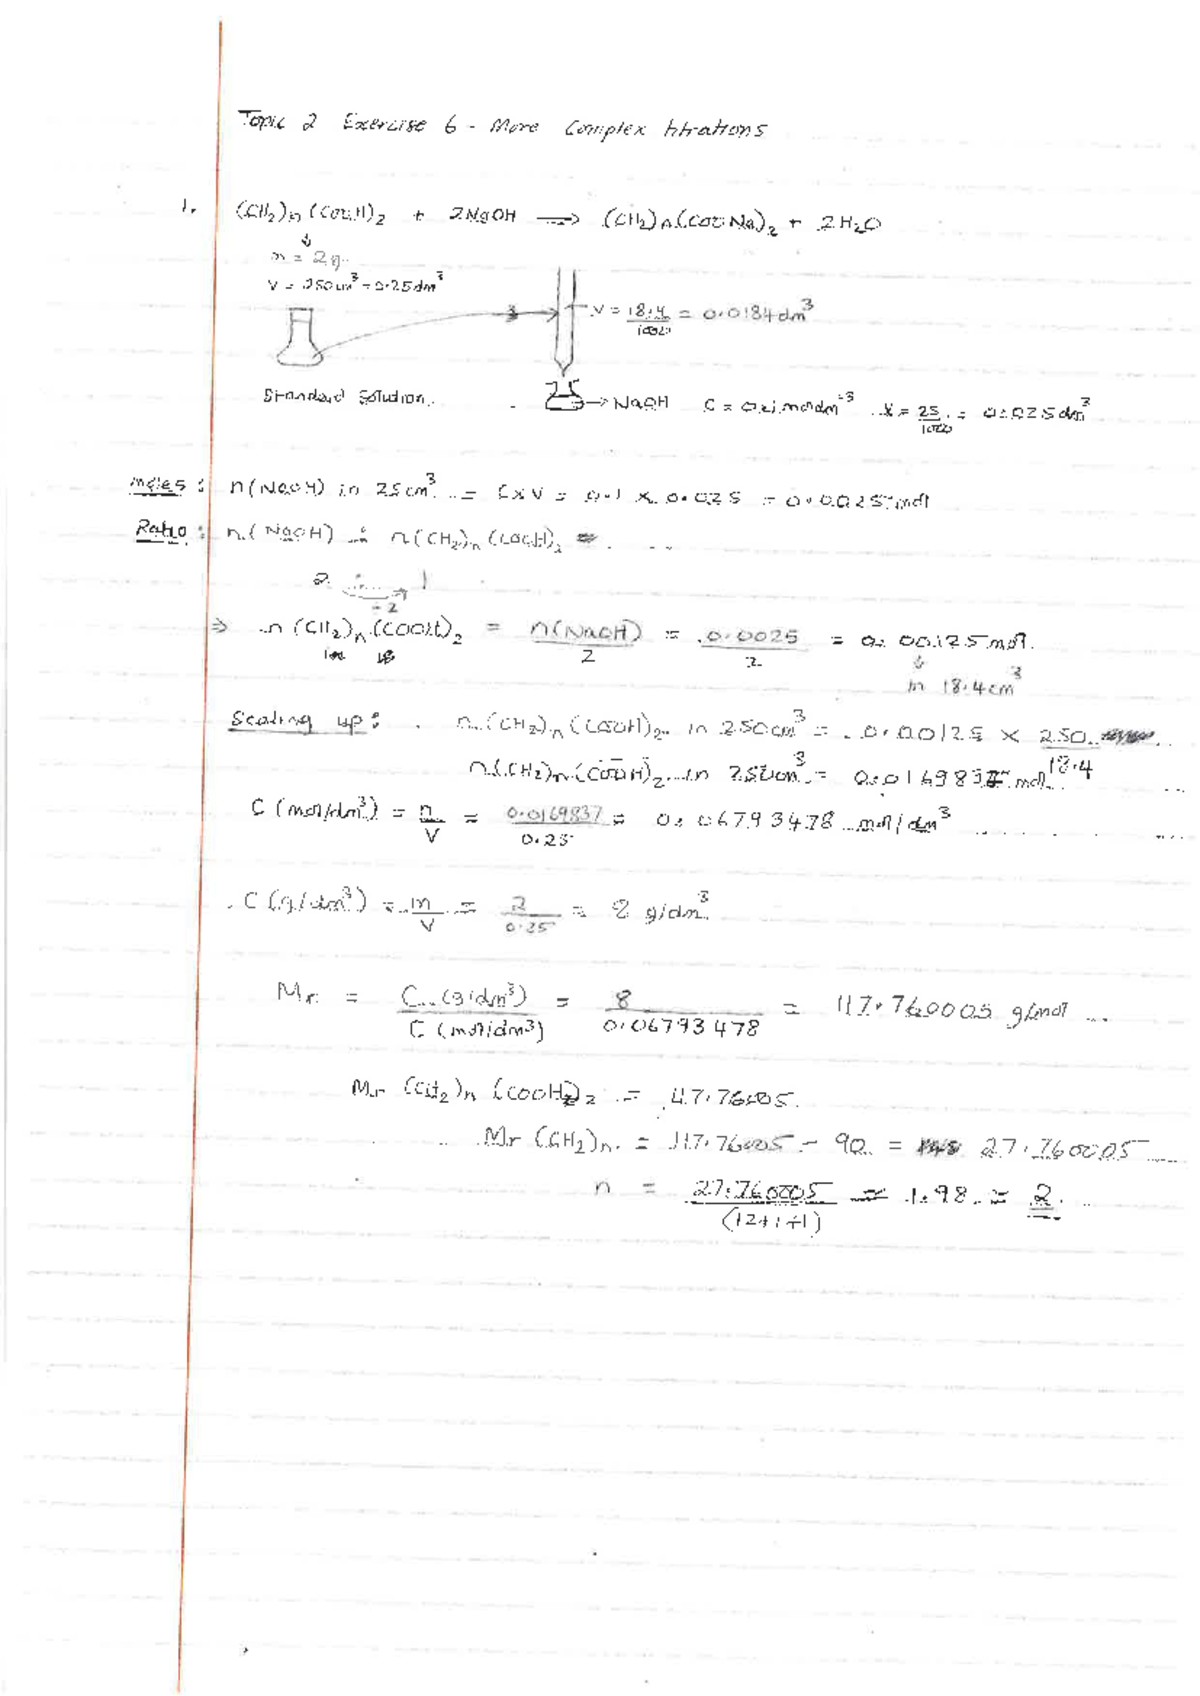 Topic 2 Exercise 6 - More Complex titrations
1. (CH2)n(COOH)2 + 2NaOH → (CH2)n(COONa)2 + 2H2O
↓
m = 2g
V = 250cm³ = 0.25dm³
V = 18.4/1000 = 0.0184dm³
Standard Solution.
25 → NaOH C = 0.1moldm⁻³ V = 25/1000 = 0.025dm³
Moles : n(NaOH) in 25cm³ = C x V = 0.1 x 0.025 = 0.0025mol
Ratio : n(NaOH) : n(CH2)n(COOH)2
2 : 1
÷2
⇒ n(CH2)n(COOH)2 = n(NaOH)/2 = 0.0025/2 = 0.00125mol.
↓
in 18.4cm³
Scaling up : n(CH2)n(COOH)2 in 250cm³ = 0.00125 x 250/18.4
n(CH2)n(COOH)2 in 250cm³ = 0.0169837mol
C (mol/dm³) = n/V = 0.0169837/0.25 = 0.06793478 mol/dm³
C (g/dm³) = m/V = 2/0.25 = 8 g/dm³
Mr = C (g/dm³)/C (mol/dm³) = 8/0.06793478 = 117.760005 g/mol
Mr (CH2)n(COOH)2 = 117.76005
Mr (CH2)n = 117.76005 - 90 = 27.760005
n = 27.760005/(12+1+1) = 1.98 = 2